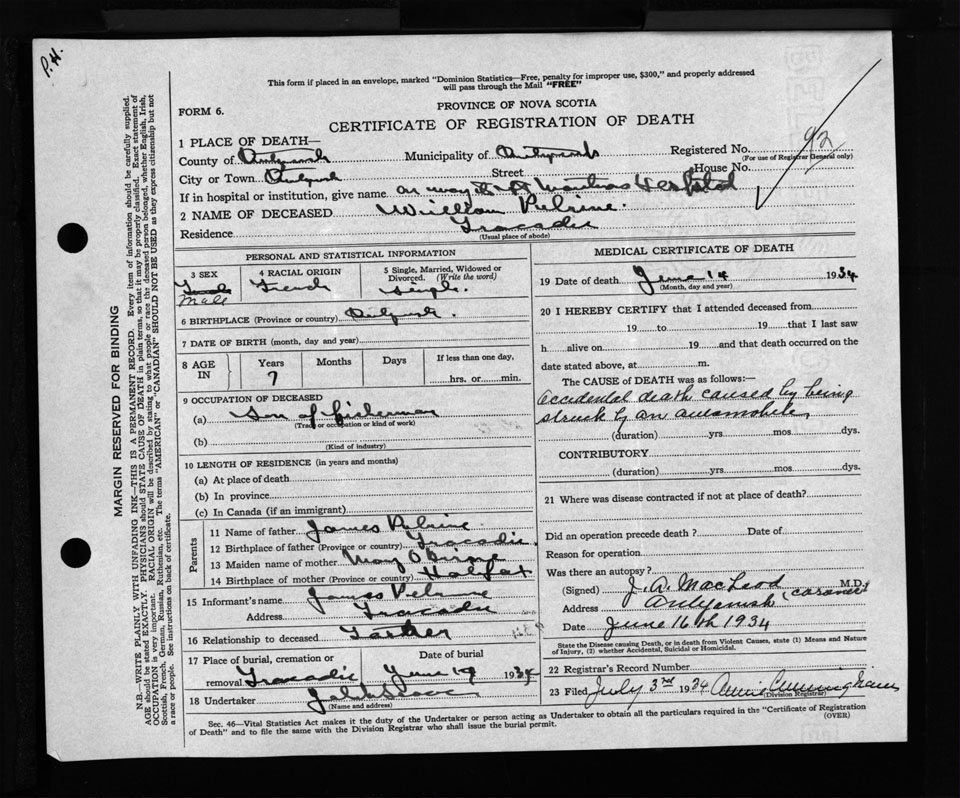 P.H.
This form if placed in an envelope, marked "Dominion Statistics—Free, penalty for improper use, $300," and properly addressed
will pass through the Mail "FREE"
FORM 6.
PROVINCE OF NOVA SCOTIA
CERTIFICATE OF REGISTRATION OF DEATH
1 PLACE OF DEATH—
County of Antigonish Municipality of Antigonish Registered No. 92
(For use of Registrar General only)
City or Town Antigonish Street House No.
If in hospital or institution, give name on way to St Marthas Hospital
2 NAME OF DECEASED William Pelrine.
Residence Tracadie
(Usual place of abode)
PERSONAL AND STATISTICAL INFORMATION
3 SEX
Male
4 RACIAL ORIGIN
French
5 Single, Married, Widowed or
Divorced. (Write the word)
Single.
6 BIRTHPLACE (Province or country) Antigonish.
7 DATE OF BIRTH (month, day and year)
8 AGE
IN
Years Months Days If less than one day,
7 hrs. or min.
9 OCCUPATION OF DECEASED
(a) Son of fisherman
(Trade or occupation or kind of work)
(b)
(Kind of industry)
10 LENGTH OF RESIDENCE (in years and months)
(a) At place of death
(b) In province
(c) In Canada (if an immigrant)
Parents
11 Name of father James Pelrine
12 Birthplace of father (Province or country) Tracadie.
13 Maiden name of mother Mary O'Brine
14 Birthplace of mother (Province or country) Halifax
15 Informant's name James Pelrine
Address Tracadie
16 Relationship to deceased Father
17 Place of burial, cremation or Date of burial
removal Tracadie June 17 1934
18 Undertaker
(Name and address)
MEDICAL CERTIFICATE OF DEATH
19 Date of death June 14 1934
(Month, day and year)
20 I HEREBY CERTIFY that I attended deceased from
19 to 19 that I last saw
h alive on 19 and that death occurred on the
date stated above, at m.
The CAUSE OF DEATH was as follows:—
Accidental death caused by being
struck by an automobile,
(duration) yrs. mos. dys.
CONTRIBUTORY
(duration) yrs. mos. dys.
21 Where was disease contracted if not at place of death?
Did an operation precede death? Date of
Reason for operation
Was there an autopsy?
(Signed) J. A. MacLeod M.D.
(coroner)
Address Antigonish
Date June 16th 1934
State the Disease causing Death, or in death from Violent Causes, state (1) Means and Nature
of Injury, (2) whether Accidental, Suicidal or Homicidal.
22 Registrar's Record Number
23 Filed July 3rd 1934 Annie Cunningham
(Division Registrar)
Sec. 46—Vital Statistics Act makes it the duty of the Undertaker or person acting as Undertaker to obtain all the particulars required in the "Certificate of Registration
of Death" and to file the same with the Division Registrar who shall issue the burial permit. (OVER)
MARGIN RESERVED FOR BINDING
N.B.—WRITE PLAINLY WITH UNFADING INK—THIS IS A PERMANENT RECORD. Every item of information should be carefully supplied.
AGE should be stated EXACTLY. PHYSICIANS should STATE CAUSE OF DEATH in plain terms, so that it may be properly classified. Exact statement of
OCCUPATION is very important. RACIAL ORIGIN will be described by stating to what people or race the deceased person belonged, whether English, Irish,
Scottish, French, German, Russian, Ruthenian, etc. The terms "AMERICAN" or "CANADIAN" SHOULD NOT BE USED as they express citizenship but not
a race or people. See instructions on back of certificate.